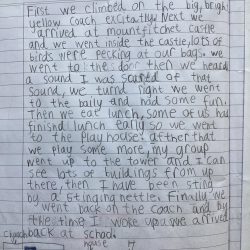 First we climbed on the big, bright
yellow coach excitatly. Next we
arrived at mountfitchet castle
and we went inside the castle, lots of
birds were pecking at our bags. we
went to the door then we heard
a sound I was scared of that
sound, we turned right we went
to the baily and had some fun.
Then we eat lunch, some of us had
finisnd lunch early so we went
to the play house after that
we play some more, my group
went up to the tower and I can
see lots of buildings from up
there, then I have been sting
by a stinging nettle. Finally we
went back on the coach and by
the time I woke up we arrived
back at school.
coach
house